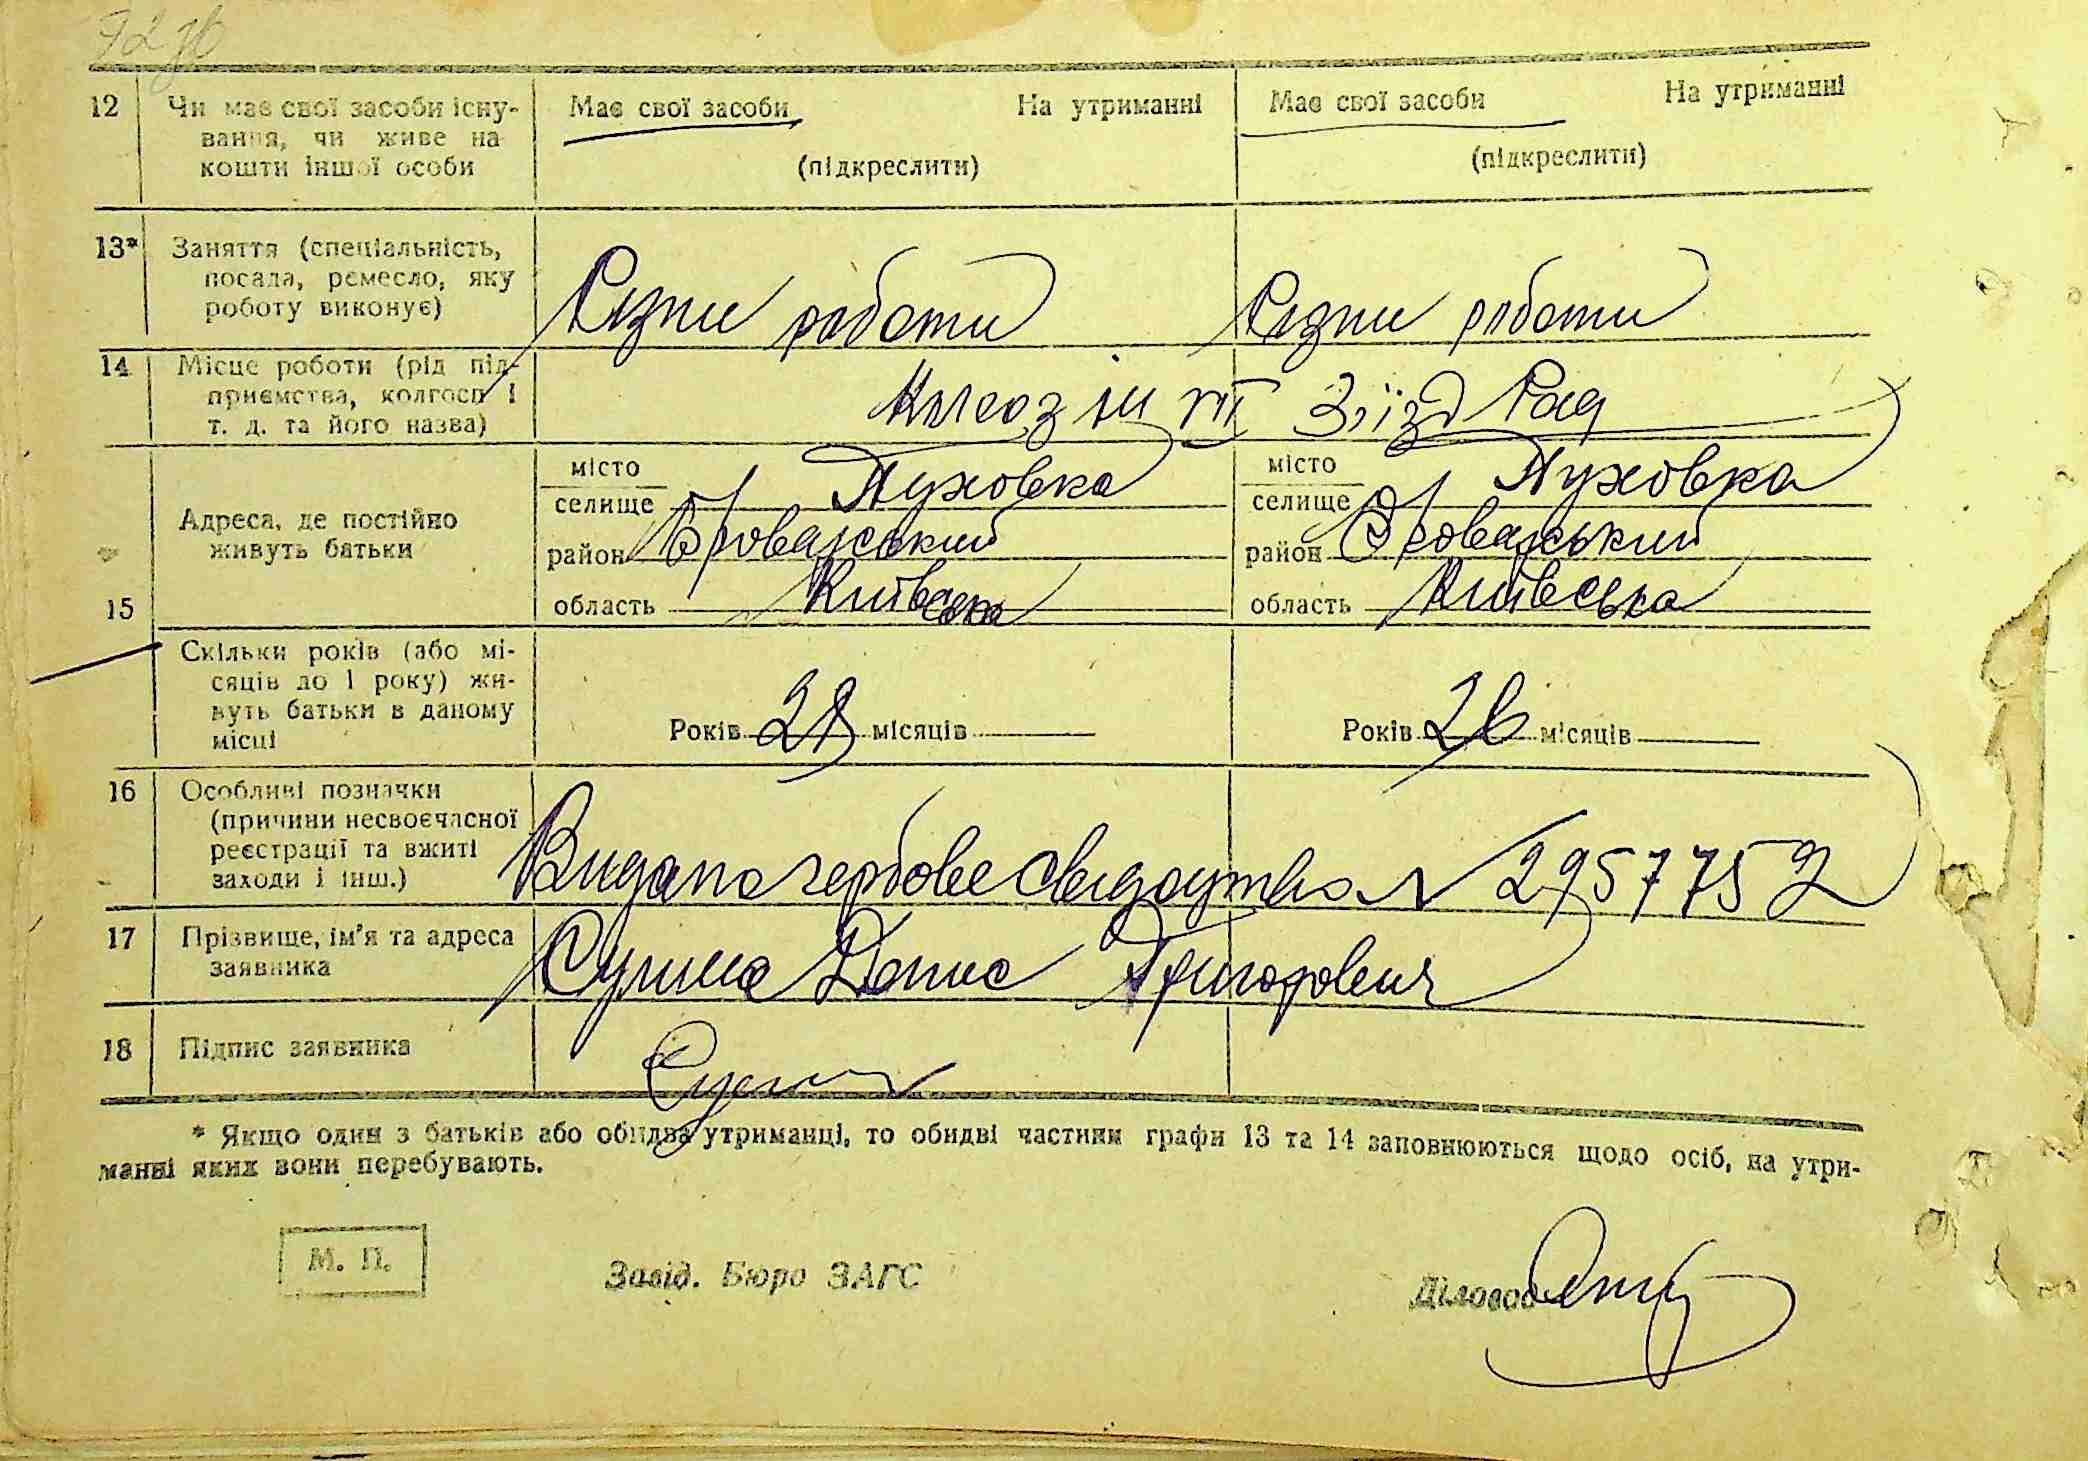 12 Чи має свої засоби існу- Має свої засоби На утриманні Має свої засоби На утриманні
вання, чи живе на
кошти іншої особи (підкреслити) (підкреслити)
13* Заняття (спеціальність,
посада, ремесло, яку
роботу виконує) Різни работи Різни работи
14 Місце роботи (рід під-
приємства, колгосп і
т. д. та його назва) Колгоз ім VII Зʼїзд Рад
місто місто
селище Пуховка селище Пуховка
Адреса, де постійно
живуть батьки район Броварський район Броварський
15 область Київська область Київська
Скільки років (або мі-
сяців до 1 року) жи-
вуть батьки в даному
місці Років 28 місяців Років 26 місяців
16 Особливі позначки
(причини несвоєчасної
реєстрації та вжиті
заходи і інш.) Видано гербове свидоцтво N 295775
17 Прізвище, ім'я та адреса
заявника Сулима Денис Григорович
18 Підпис заявника
* Якщо один з батьків або обидва утриманці, то обидві частини графи 13 та 14 заповнюються щодо осіб, на утри-
манні яких вони перебувають.
М. П. Завід. Бюро ЗАГС Діловод